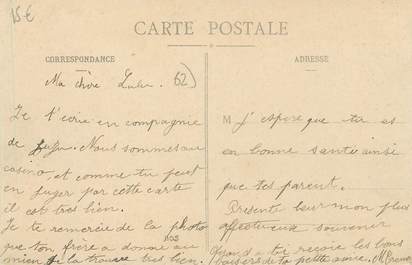 15€
CARTE POSTALE
CORRESPONDANCE
ADRESSE
Ma chère Lulu. 62)
Je t'écris en compagnie
de Nous sommes au
casino, et comme tu peut
en juger par cette carte
il est très bien.
Je te remercie de la photo
que ton frère a donné au
mien je la trouve très bien.
M J'espère que tu es
en bonne santé ainsi
que tes parent.
Présente leur mon plus
affectueux souvenir
Quand a toi reçoie les bons
baisers de ta petite amie. M.